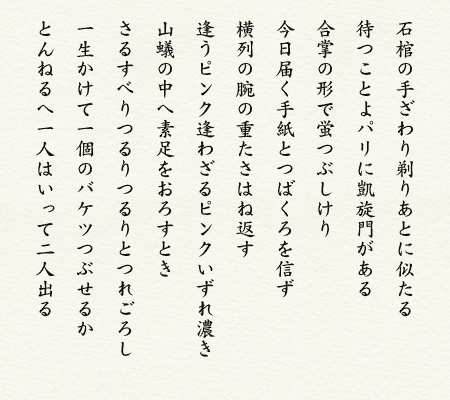 石棺の手ざわり剃りあとに似たる
待つことよパリに凱旋門がある
合掌の形で蛍つぶしけり
今日届く手紙とつばくろを信ず
横列の腕の重たさはね返す
逢うピンク逢わざるピンクいずれ濃き
山蟻の中へ素足をおろすとき
さるすべりつるりつるりとつれごろし
一生かけて一個のバケツつぶせるか
とんねるへ一人はいって二人出る